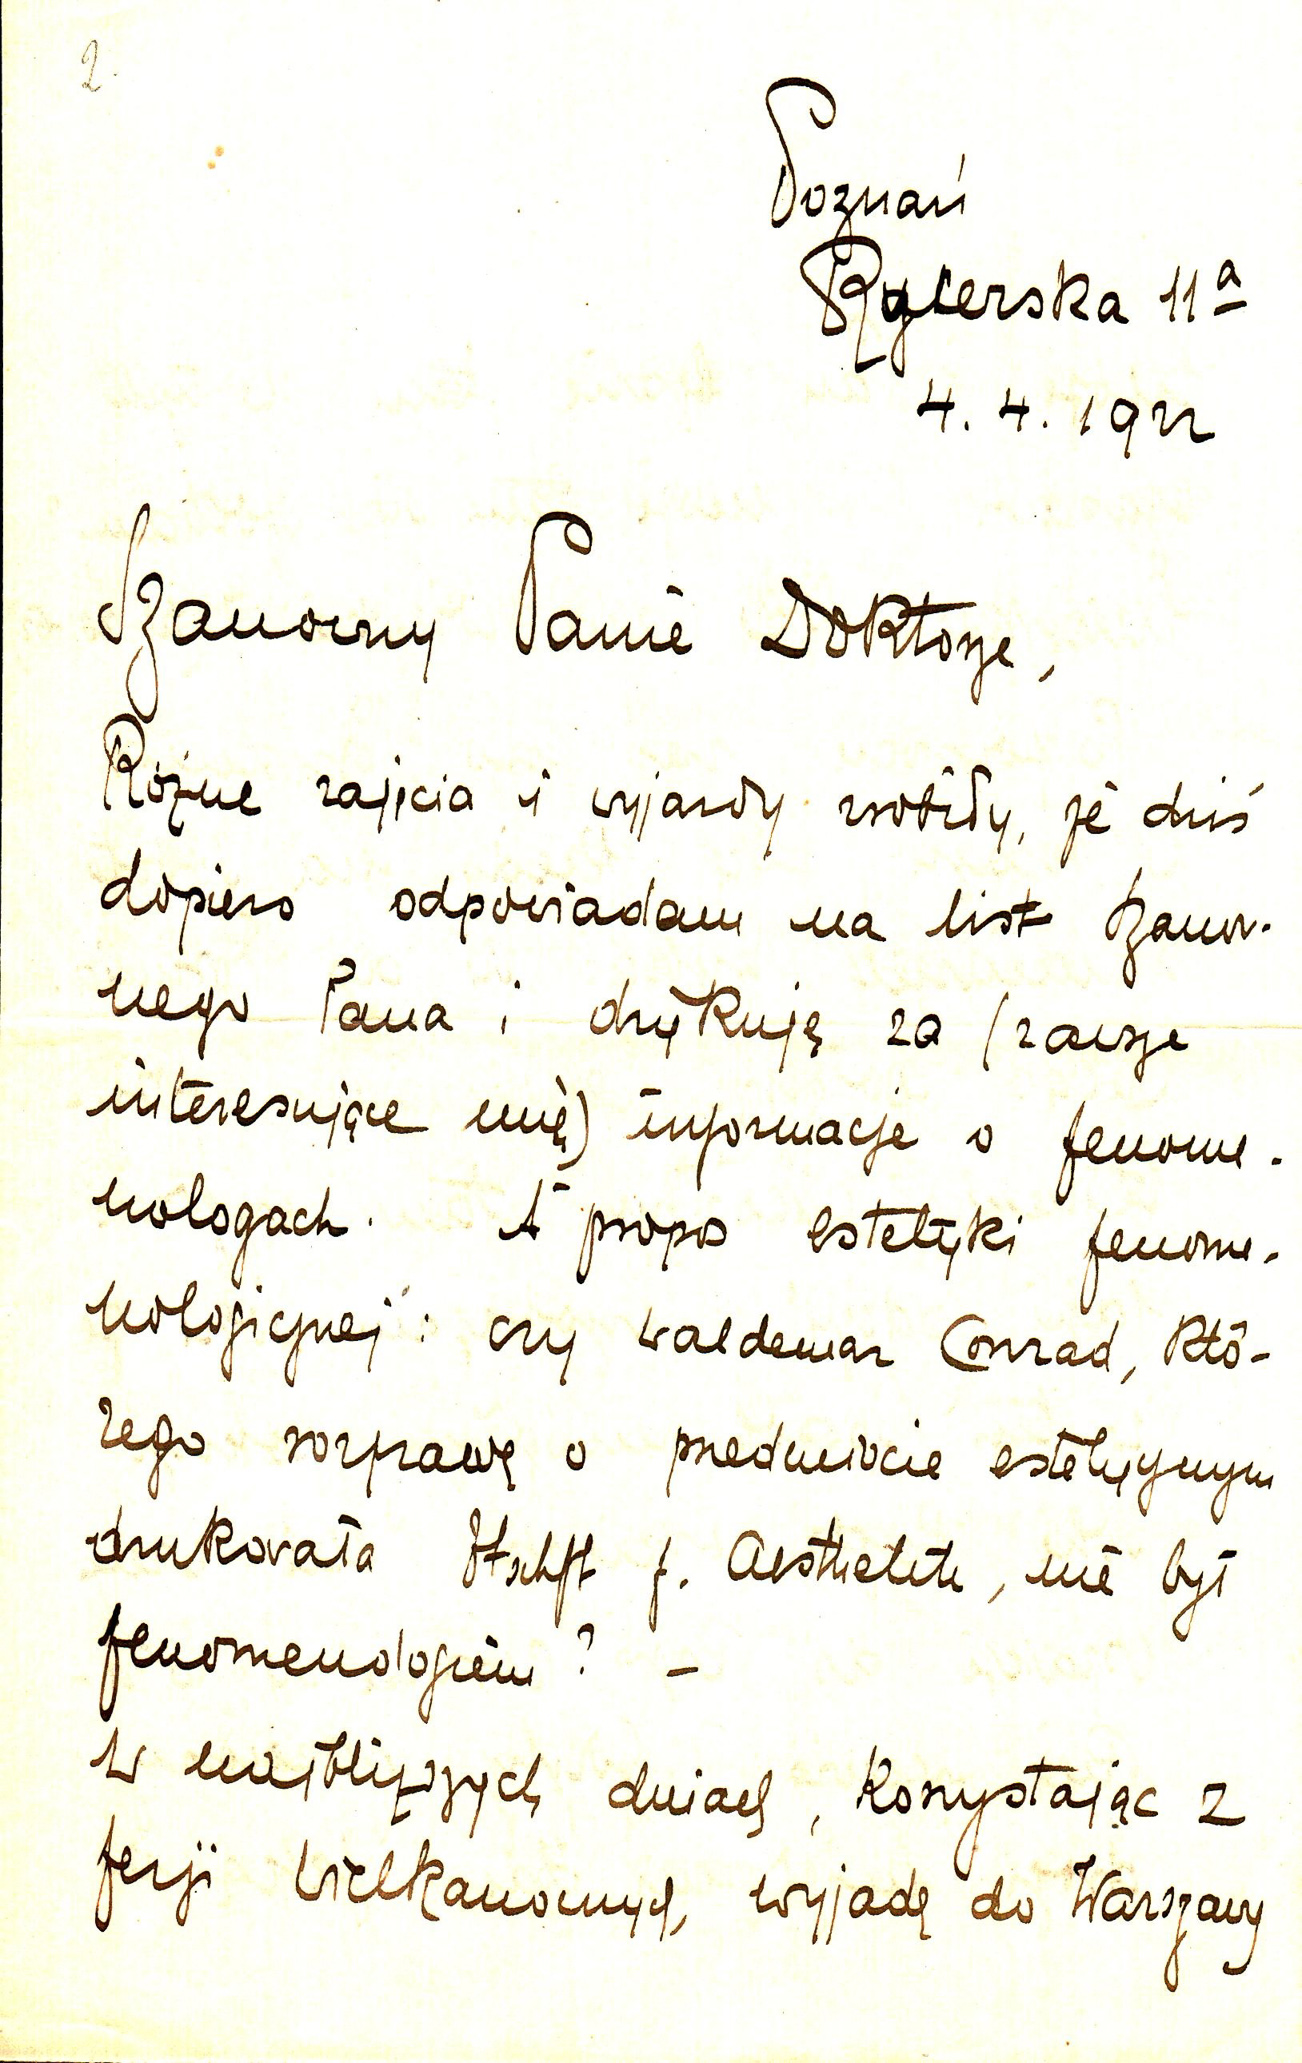 2.
Poznań
Rycerska 11a
4. 4. 1922
Szanowny Panie Doktorze,
Różne zajęcia i wyjazdy zrobiły, że dziś
dopiero odpowiadam na list Szanow-
nego Pana i dziękuję za (zawsze
interesujące mię) informacje o fenome-
nologach. A propos estetyki fenome-
nologicznej: czy Waldemar Conrad, któ-
rego rozprawę o przedmiocie estetycznym
drukowała Ztschft f. Aesthetik, nie był
fenomenologiem? –
W najbliższych dniach, korzystając z
feryji Wielkanocnych, wyjadę do Warszawy